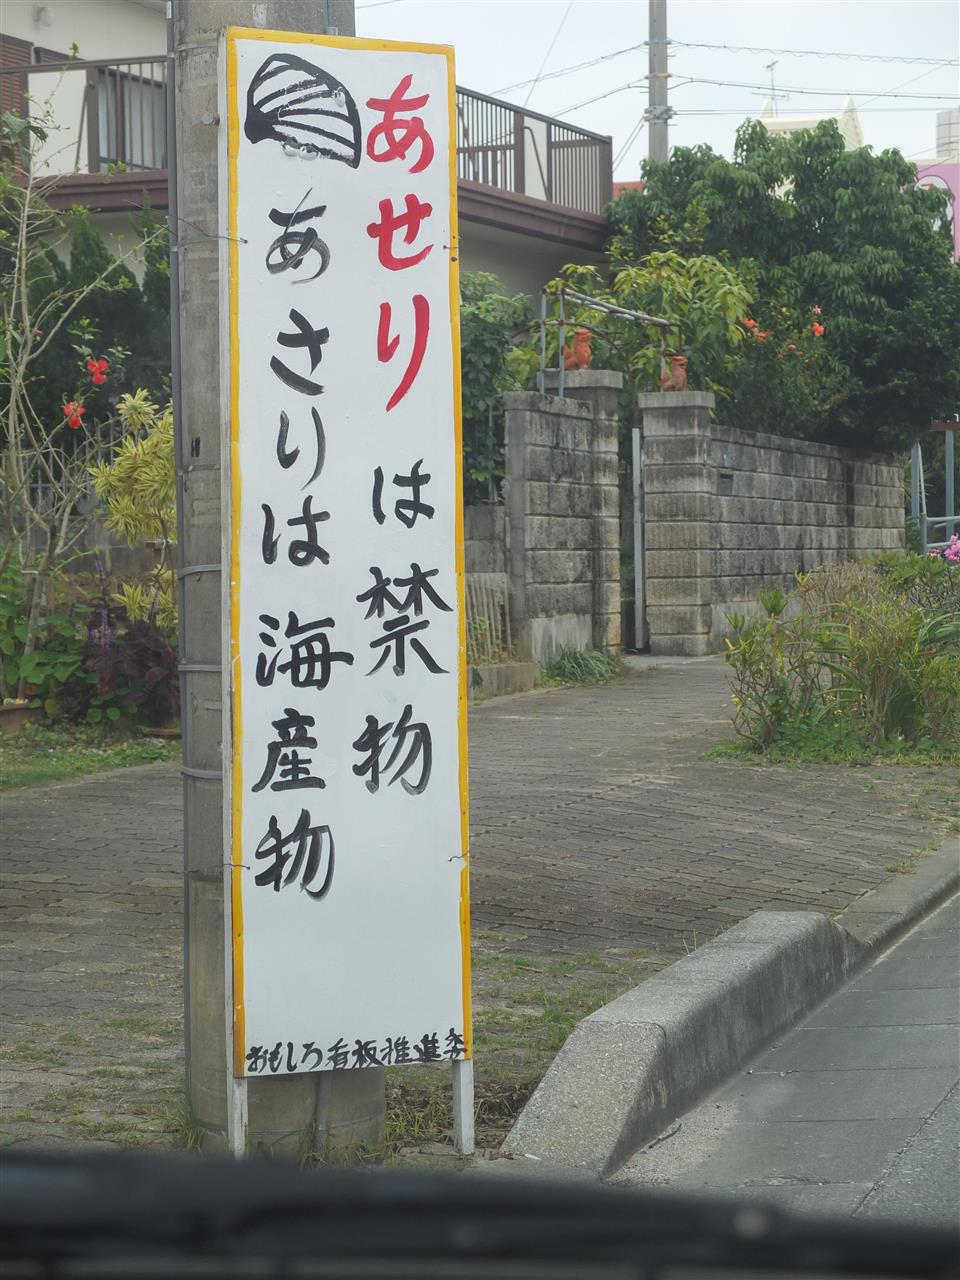 あせりは禁物
あさりは海産物
おもしろ看板推進委